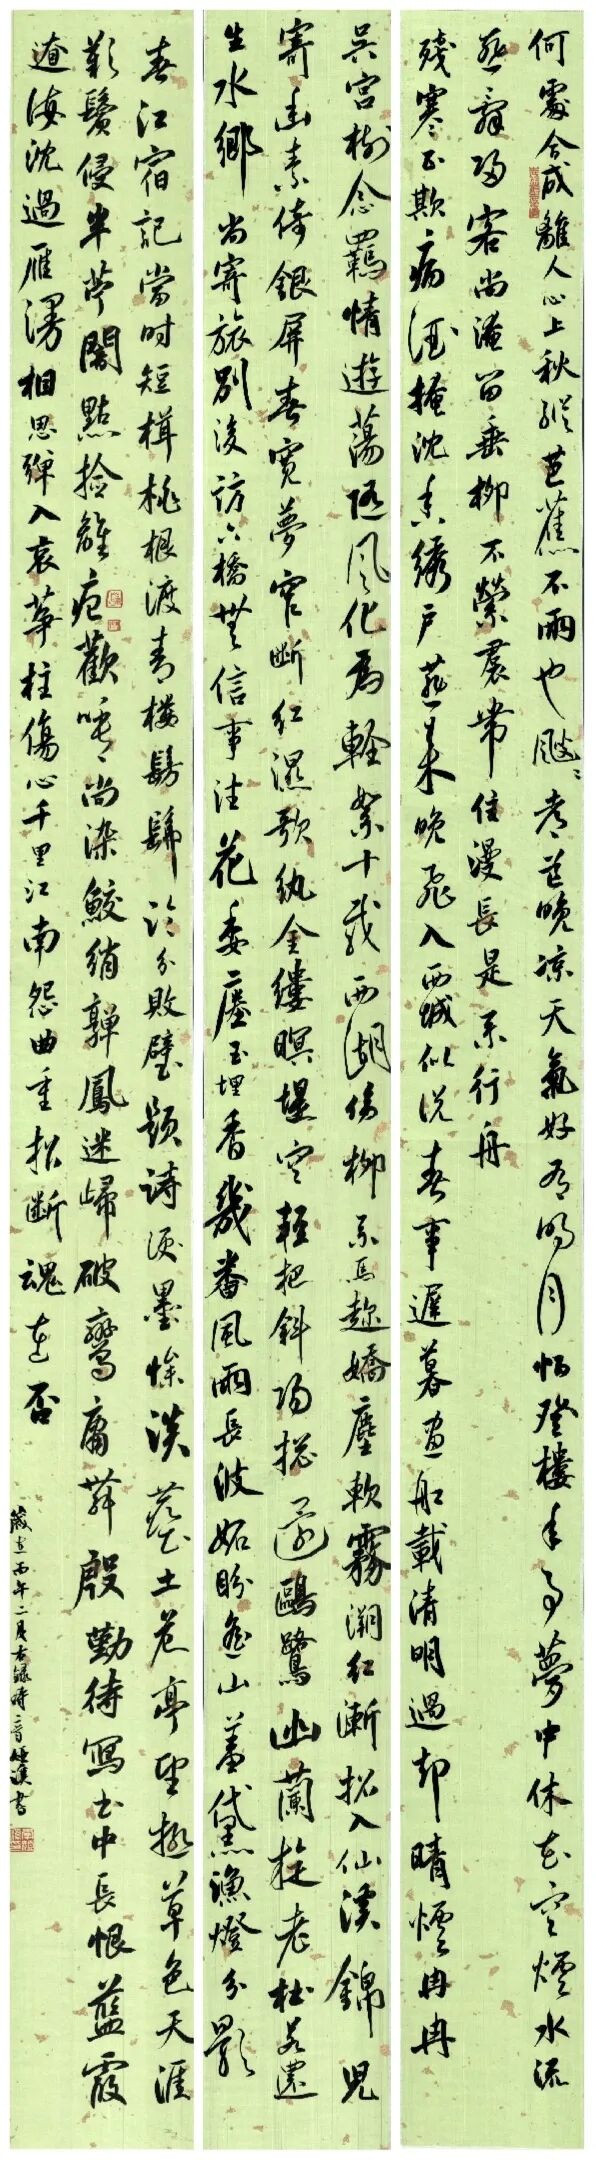 何處合成離人心上秋縱芭蕉不雨也颼颼都道晚涼天氣好有明月怕登樓年事夢中休花空煙水流
燕辭歸客尚淹留垂柳不縈裙帶住漫長是系行舟
殘寒正欺病酒掩沈香繡戶燕來晚飛入西城似說春事遲暮畫船載清明過却晴煙冉冉
吳宮樹念羈情遊蕩隨風化為輕絮十載西湖傍柳系馬趁嬌塵軟霧溯紅漸招入仙溪錦兒
寄幽素倚銀屏春寬夢窄斷紅濕歌紈金縷暝堤空輕把斜陽總還鷗鷺幽蘭旋老杜若還
生水鄉尚寄旅別後訪六橋無信事往花委塵玉埋香幾番風雨長波妬盼遙山羞黛漁燈分影
春江宿記當時短楫桃根渡青樓髣髴臨分敗壁題詩淚墨慘淡塵土危亭望極草色天涯
歎鬢侵半苧闇點撿離痕歡唾尚染鮫綃嚲鳳迷歸破鸞慵舞殷勤待寫書中長恨藍霞
遼海沈過雁漫相思彈入哀箏柱傷心千里江南怨曲重招斷魂在否
歲在丙午二月 書